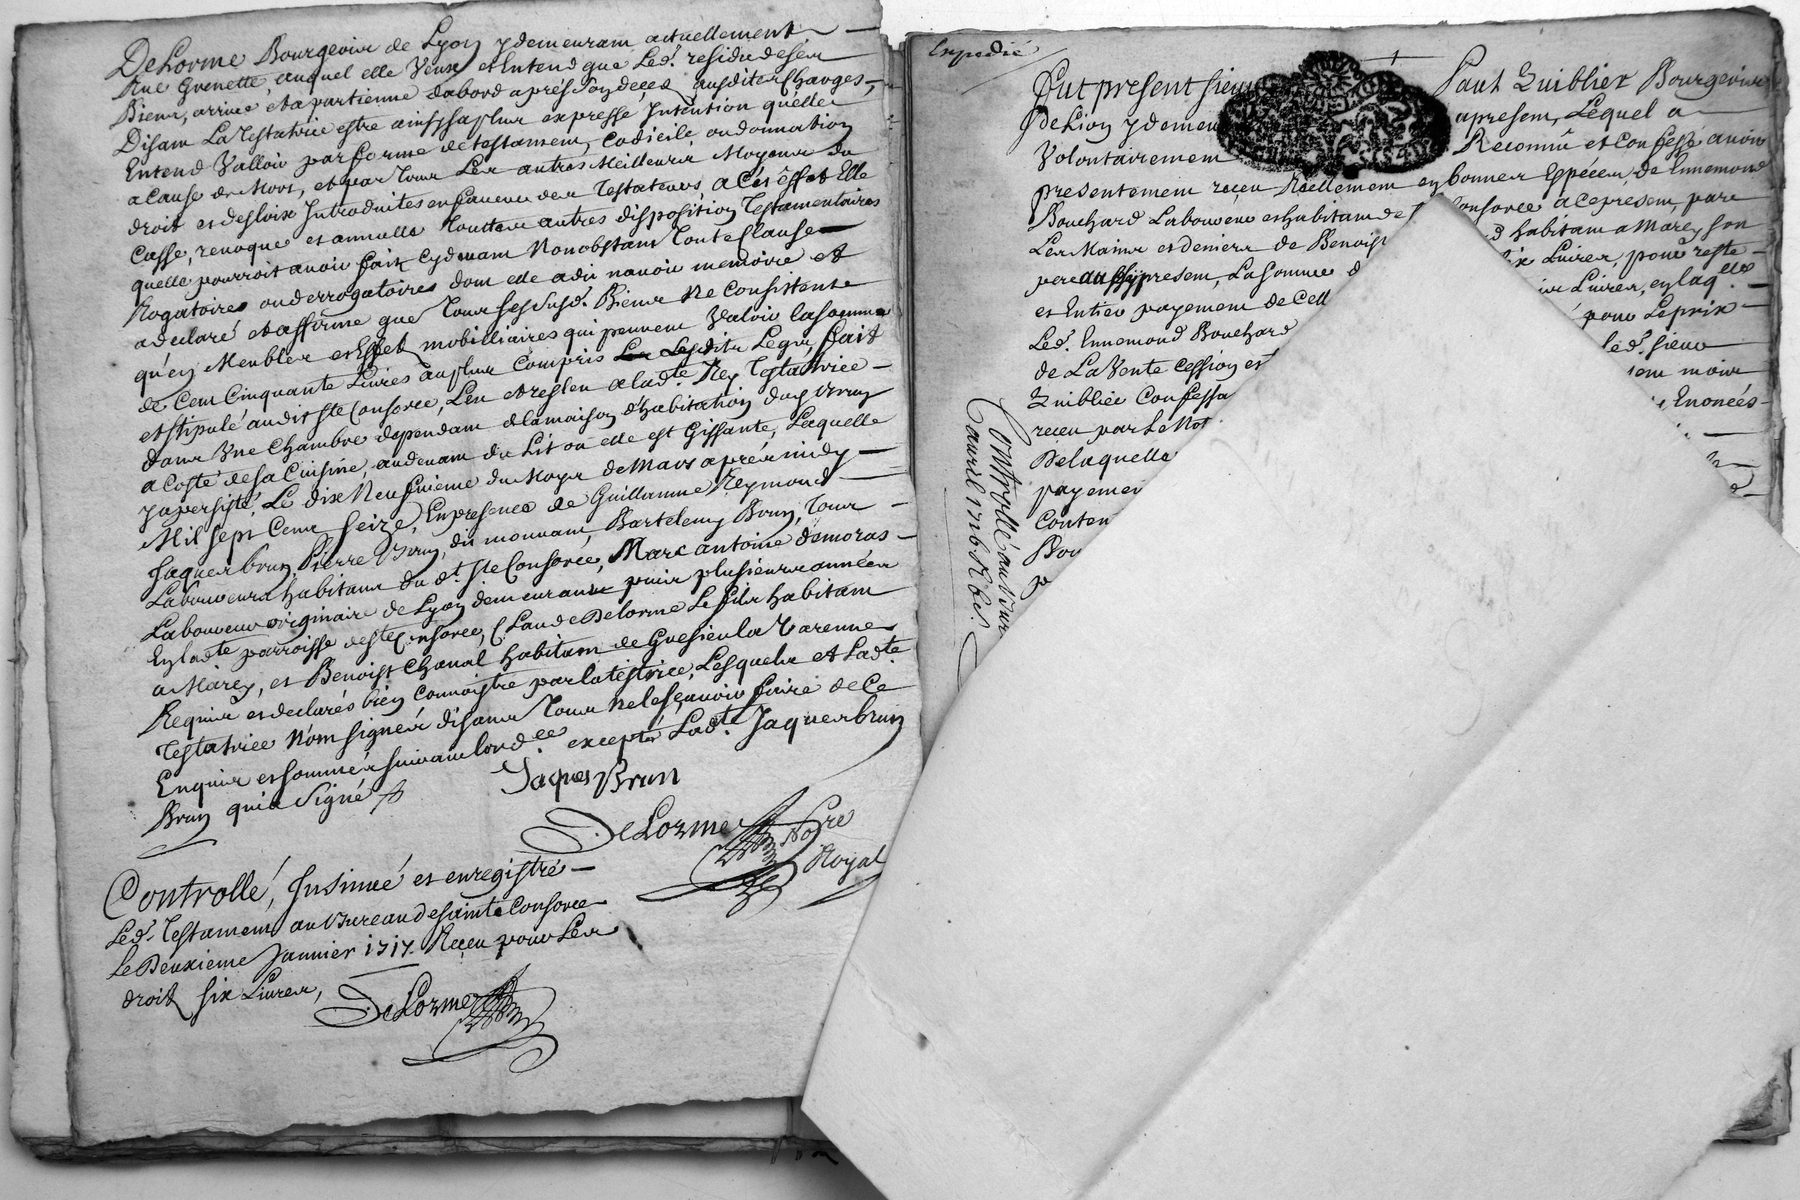 DeLorme Bourgeoir de Lyon y demeurant actuellement
Rue Grenette, auquel elle Veux et Entend que Led. residu de ser
Bienr, arrive et apartienne dabord aprés son decez ausditer Charger,
Disant La Testatrice estre ainsy sa plur expresse Intention quelle
Entend Valloir par forme de testament, codicile, ou donnation
a cause de Mort, et par tour Ler autres Meilleurs Moyenr du
droit et des loix Introduites en faveur der Testateurs, a Cés éffet Elle
Casse, revoque et annulle touttes autres disposition Testamentaires
quelle pourroit avoir fait Cy devant Nonobstant toute Clause
Rogatoires ou derrogatoires dont elle a dit n'avoir memoire et
a declaré et afforme que tour ses susd. Bienr Ne Consistent
qu'en Meubler et Effet mobilliaires qui peuvent Valoir la somme
de Cent Cinquante Livres au plus compris Les Lesdits Legr, fait
et stipulé audit Ste Consorce, Leu et resleu a lad.te Rey Testatrice
dans Une Chambre dependant de la maison d'habitation du Sr Vrray
a Costé de sa Cuisine au devant du Lit ou elle est Gissante, Laquelle
y a persisté, Le dix Neufvieme du Moys de Mars aprés midy
Mil sept Cent seize, En presence de Guillaume Reymond
Jaquer brun, Pierre Vrray, dit mouvant, Bartelemy Brun, tour
Laboureurs habitant du d.t Ste Consorce, Marc antoine demoras
Laboureur originaire de Lyon demeurant puis plusieurs année
En lad.te parroisse de Ste Consorce, Claude Delorme Le fils habitant
a Marcy, et Benoist Chanal habitant de Gresieu la Varenne
Requir et declarés bien Connoistre par la téstrice, Lesquels et Lad.te
Testatrice N'ont signer disant tour ne le sçavoir faire de Ce
Enquir et sommer suivant lord.ce excepté Led.t Jaquer brun
Brun qui a signé
Jaques Brun
DeLorme No.re
Royal
Controllé, Insinué et enregistré
Led. Testament au Bureau de sainte Consorce
Le Deuxieme Janvier 1717. Receu pour Ler
droit six Livrer,
DeLorme
Expedié
Fut present sieur Paul Quiblier Bourgeoir
de Lion y demeu apresent, Lequel a
Volontairement Reconnu et Confessé avoir
presentement receu Réellement en bonner Espécer, de Ennemond
Bouchard Laboureur et habitant de Consorce a ce present, par
Ler Mainr et denierr de Benoist habitant a Marcy son
pere aussy present, La Somme d ix Livrer, pour reste
et Entier payement de Cell Livrer, en laq.lle
Led. Ennemond Bouchard pour Le prix
de La Vente Cession et Led. sieur
Quiblier Confessa moir
receu par Le Not Enoncés
De laquelle
payemen
Conten
Bou
Controllé au Bur